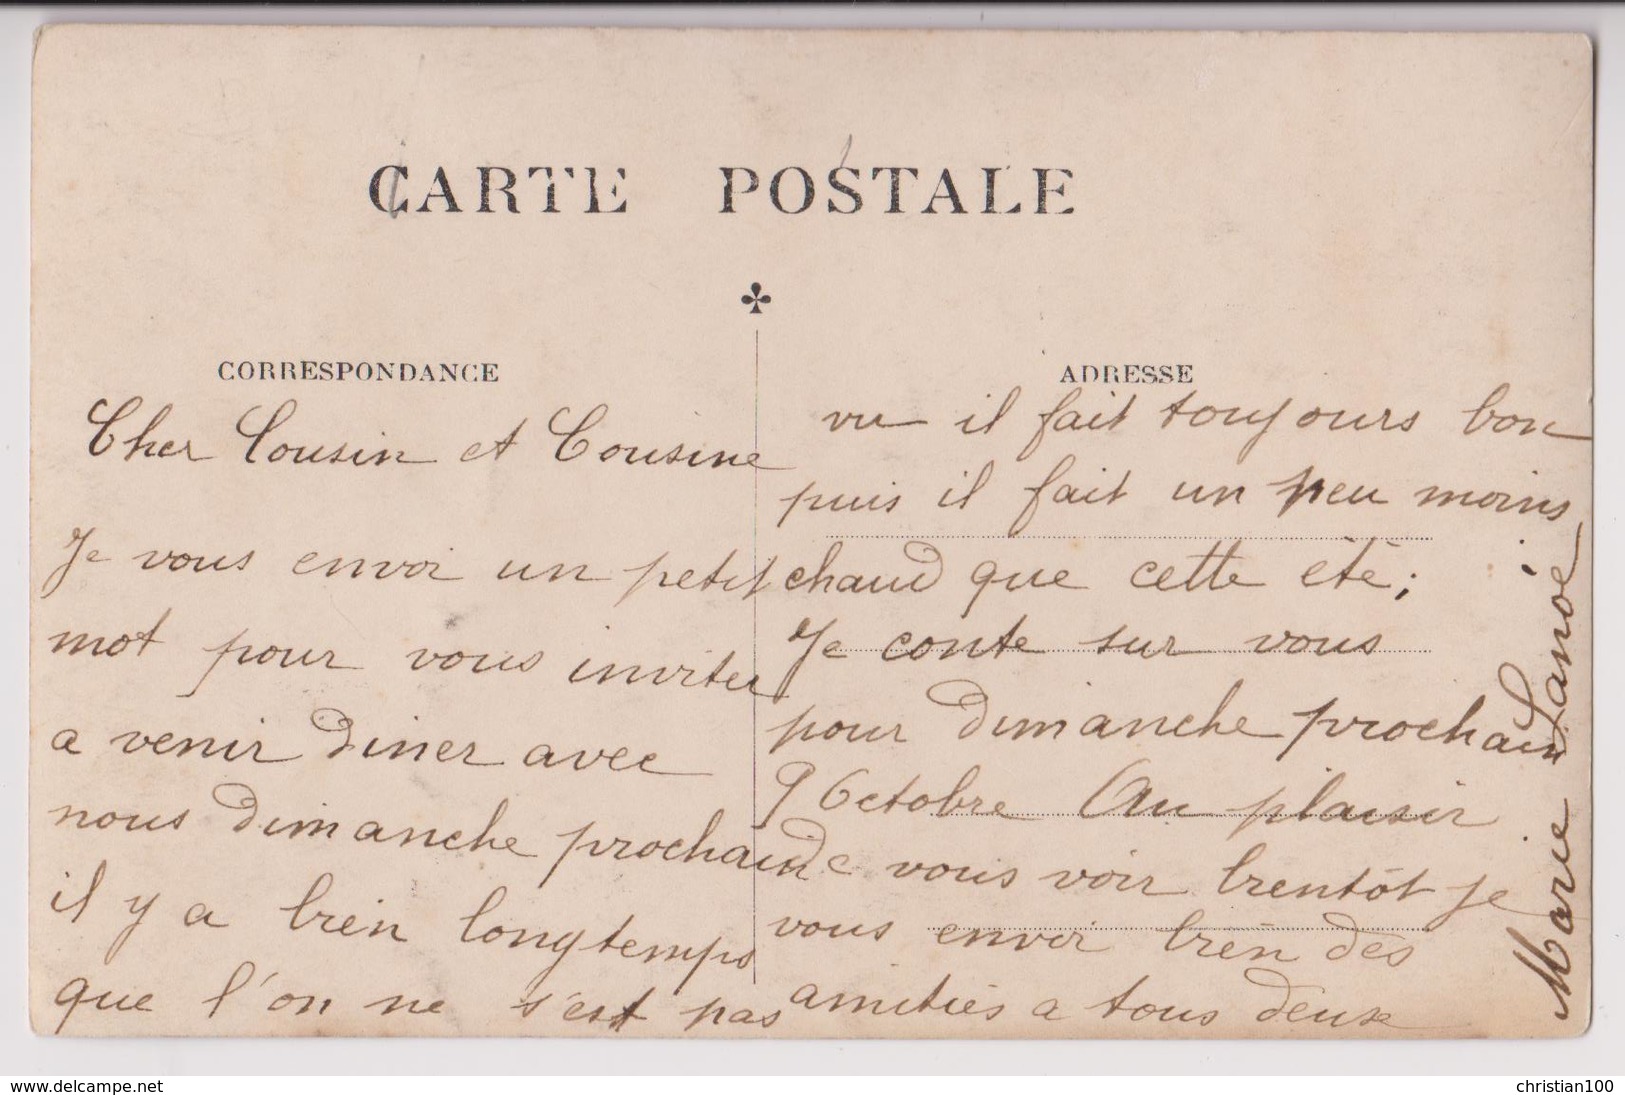 CARTE POSTALE
CORRESPONDANCE
Cher Cousin et Cousine
Je vous envoi un petit
mot pour vous inviter
a venir diner avec
nous dimanche prochain
il y a bien longtemps
que l'on ne s'est pas
ADRESSE
vu il fait toujours bon
puis il fait un peu moins
chaud que cette été;
Je conte sur vous
pour dimanche prochain
9 Octobre Au plaisir
de vous voir bientôt je
vous envoir bien des
amitiés a tous deux
Marie Lanoë
www.delcampe.net
christian100